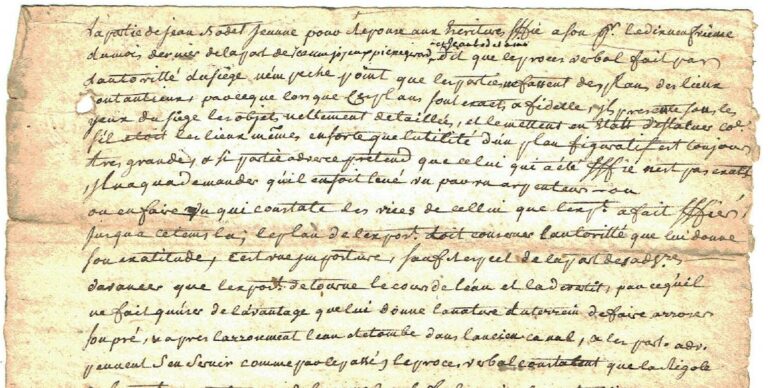 La partie de jean Rodet Jeune pour Reponse aux Ecritures sffié a son pr. le dixneufvieme
du mois dernier de la part de
dit que le proces verbal fait par
l'autorité du siège n'empeche point que les parties ne fassent des plans des lieux
contantieux parceque lorsque ces plans sont exacts, a fidelle, ils presente sous les
yeux du siège les objets nettement detaillés, et le mettent en Etatt destatuer co
s'il etoit les lieux mêmes en sorte que l'utilité d'un plan figuratif est toujours
tres grande, si partie adverse pretend que celui qui a été sffié n'est pas exact
il n'a qu'a demander qu'il en soit levé un par un arpenteur ou
ou en faire un qui constate les vices de cellui que l'exp.t a fait sffier,
Jusqu'a ce tems la, le plan de l'expos.t doit conserver l'autorité que lui donne
son exatitude, C'est une imposture, de la part des adv.res
d'avancer que l'expos.t detourne le cours de l'eau et la derattit, parcequ'il
ne fait qu'user de l'avantage que lui donne la nature du terrein de faire arroser
son pré, apres l'arrosement l'eau retombe dans l'ancien canal, a les part. adv.
peuvent s'en servir comme par le passé, le proces verbal constatant que la Rigole